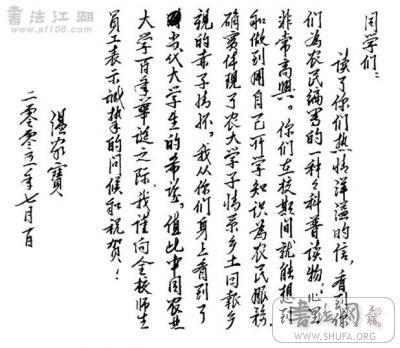 书法江湖
www.sf108.com
同学们：
读了你们热情洋溢的信，看到你
们為农民編写的一种々科普读物，心里
非常高興。你们在校期间就能想到
和做到用自己所学知识為农民服務，
确實体现了农大学子情系乡土回報乡
親的赤子情怀。我从你们身上看到了
当代大学生的希望。值此中国农业
大学百年華诞之际，我謹向全校师生
员工表示诚挚的问候和祝贺！
温家寶
二零零五年七月一日
WWW.SHUFA.ORG